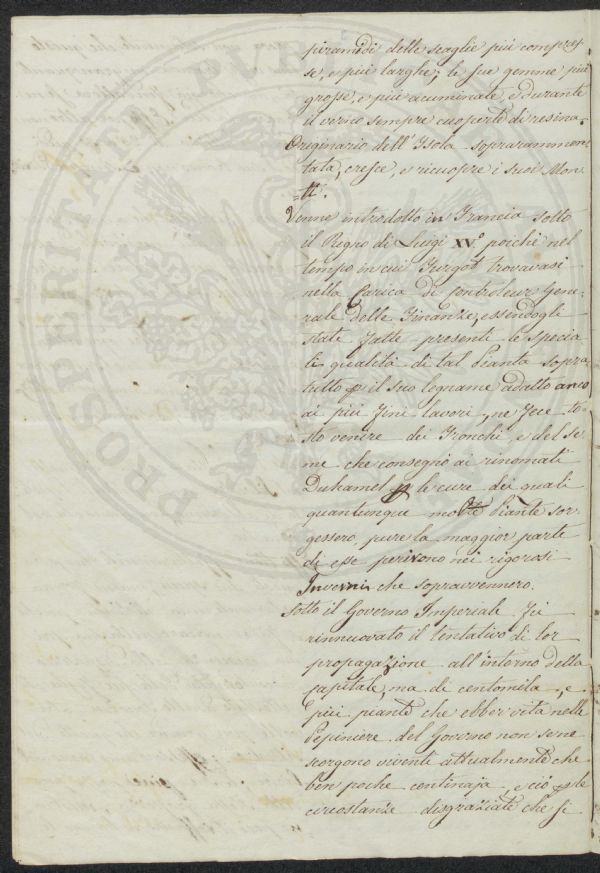 piramidi delle scaglie più compres-
se, e più larghe; le sue gemme più
grosse, e più acuminate, e durante
il verno sempre cuoperte di resina.
Originario dell'Isola soprarammen-
tata, cresce, e ricuopre i suoi Mon-
ti.
Venne introdotto in Francia sotto
il Regno di Luigi XV.º poichè nel
tempo in cui Turgot trovavasi
nella Carica di Controleur Gene-
rale delle Finanze, essendogli
state fatte presenti le specia
li qualità di tal Pianta sopra
tutto p il suo legname adatto anco
ai più fini lavori, ne fece to-
sto venire dei Tronchi, e del se-
me che consegnò ai rinomati
Duhamel p le cure dei quali
quantunque molte Piante sor-
gessero, pure la maggior parte
di esse perirono nei rigorosi
Inverni che sopravvennero.
Sotto il Governo Imperiale fu
rinnuovato il tentativo di lor
propagazione all'interno della
Capitale, ma di centomila, e
più piante che ebber vita nelle
Pepiniere del Governo non se ne
scorgono viventi attualmente che
ben poche centinaja, e ciò p le
circostanze disgraziate che si
PROSPERITATI PVBLI